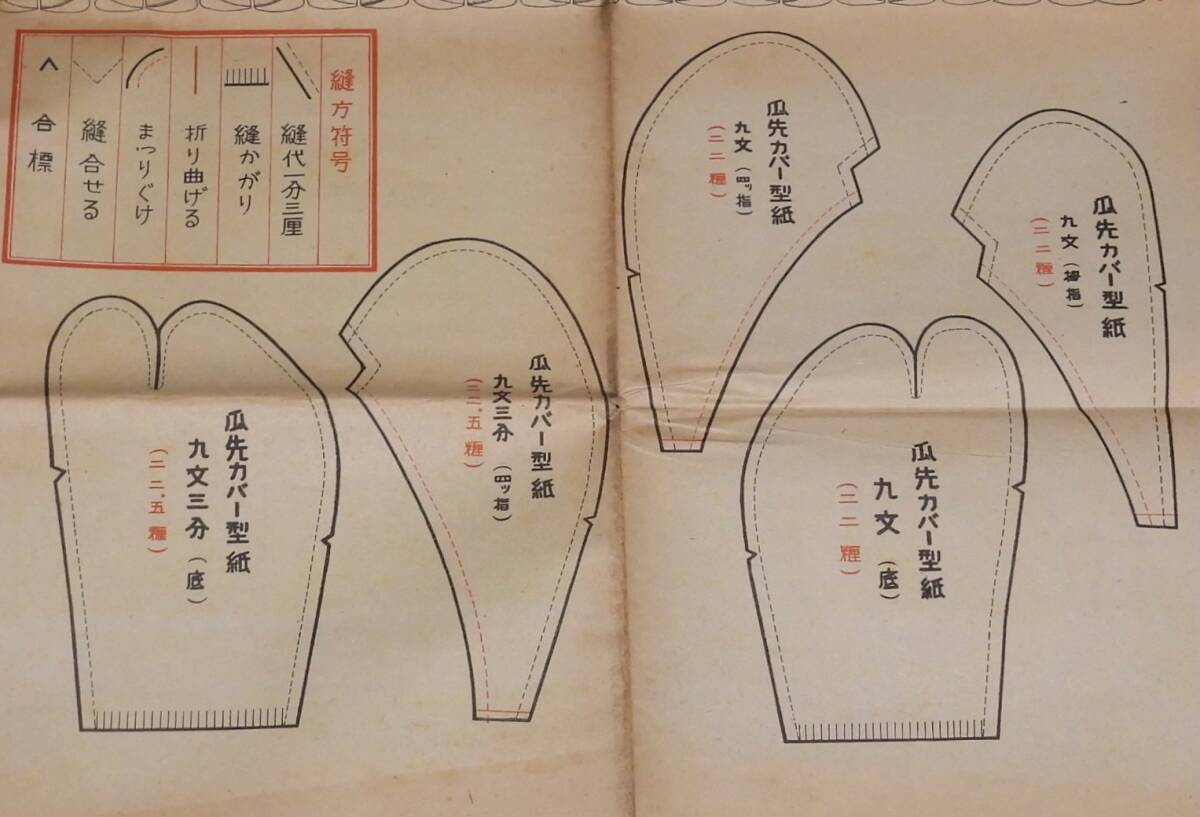 縫方符号
縫代一分三厘
縫かがり
折り曲げる
まつりぐけ
縫合せる
合標
爪先カバー型紙
九文(四ッ指)
(二二糎)
爪先カバー型紙
九文(拇指)
(二二糎)
爪先カバー型紙
九文三分(四ッ指)
(二二.五糎)
爪先カバー型紙
九文三分(底)
(二二.五糎)
爪先カバー型紙
九文(底)
(二二糎)